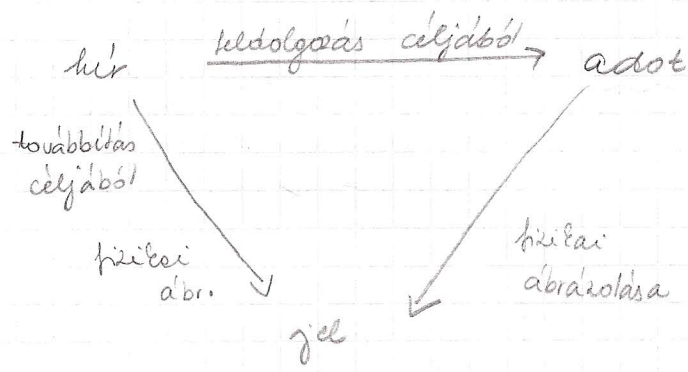 feldolgozás céljából
hír
adat
továbbítás
céljából
fizikai
ábr.
fizikai
ábrázolása
jel